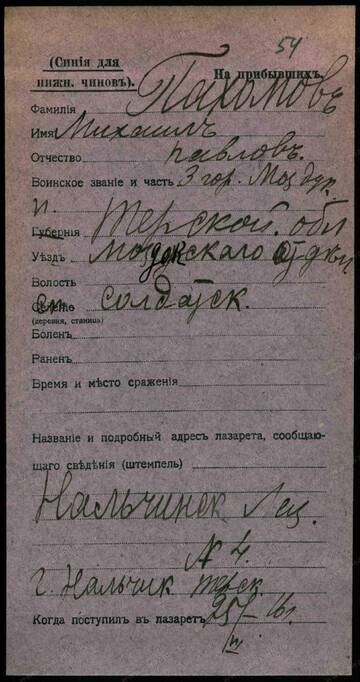 54
(Синія для
нижн. чиновъ).
На прибывшихъ.
Фамилія Пахомовъ
Имя Михаилъ
Отчество павловъ.
Воинское званіе и часть 3 гор. Моздок.
п.
Губернія Терской. обл
Уѣздъ моздокскаго отдѣл
Волость
Селеніе ст. солдатск.
(деревня, станица)
Боленъ
Раненъ
Время и мѣсто сраженія
Названіе и подробный адресъ лазарета, сообщаю-
щаго свѣдѣнія (штемпель)
Нальчинск Лаз.
№ 4.
г. Нальчик терск.
Когда поступилъ въ лазаретъ 25/III - 16 г.